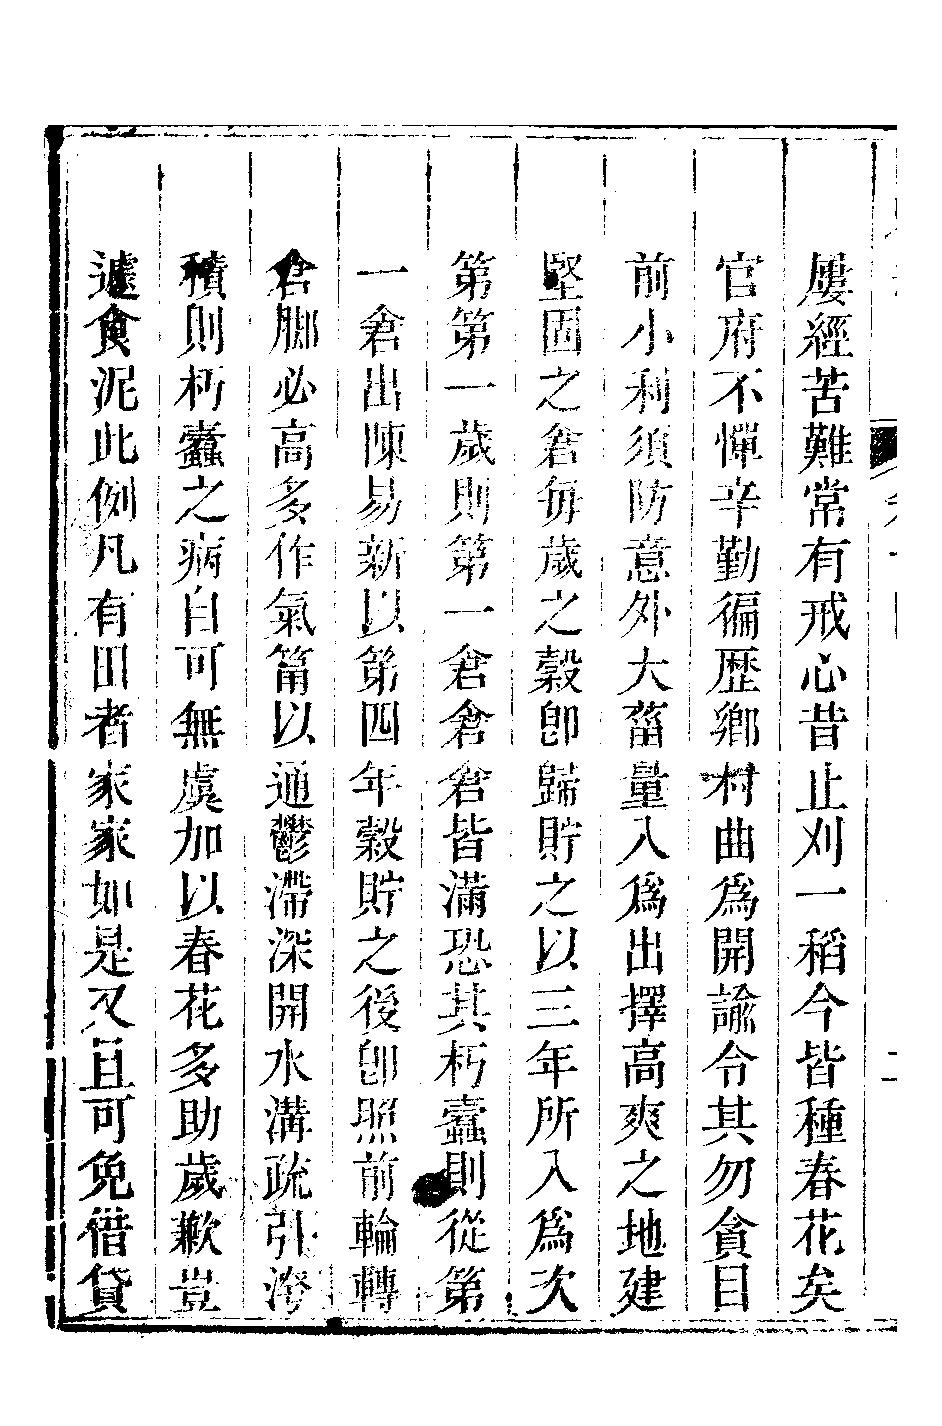 屢經苦難常有戒心昔止刈一稻今皆種春花矣
官府不憚辛勤徧歷鄉村曲爲開諭令其勿貪目
前小利須防意外大菑量入爲出擇高爽之地建
堅固之倉每歲之穀卽歸貯之以三年所入爲次
第第一歲則第一倉倉倉皆滿恐其朽蠹則從第
一倉出陳易新以第四年穀貯之後卽照前輪轉
倉腳必高多作氣筩以通鬱滯深開水溝疏引潦
積則朽蠹之病自可無虞加以春花多助歲歉豈
遽食泥此例凡有田者家家如是又且可免借貸